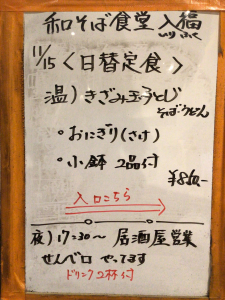 和そば食堂 入福
いりふく
11/15 <日替定食>
温) きざみ玉子とじ
そば・うどん
。おにぎり(さけ)
。小鉢 2品付
¥860-
入口こちら
夜) 17:30〜 居酒屋営業
せんべロ やってます
ドリンク2杯付